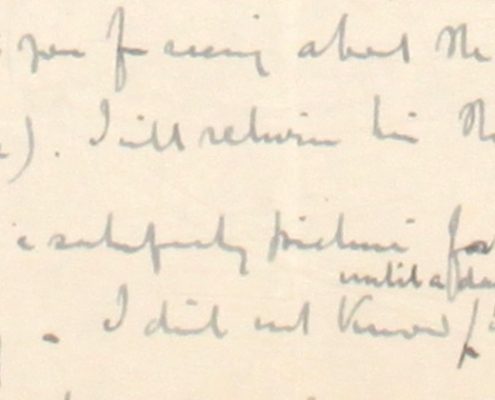 you for seeing about the
). I will return him the
a satisfactory picture for
until a da
. I did not know